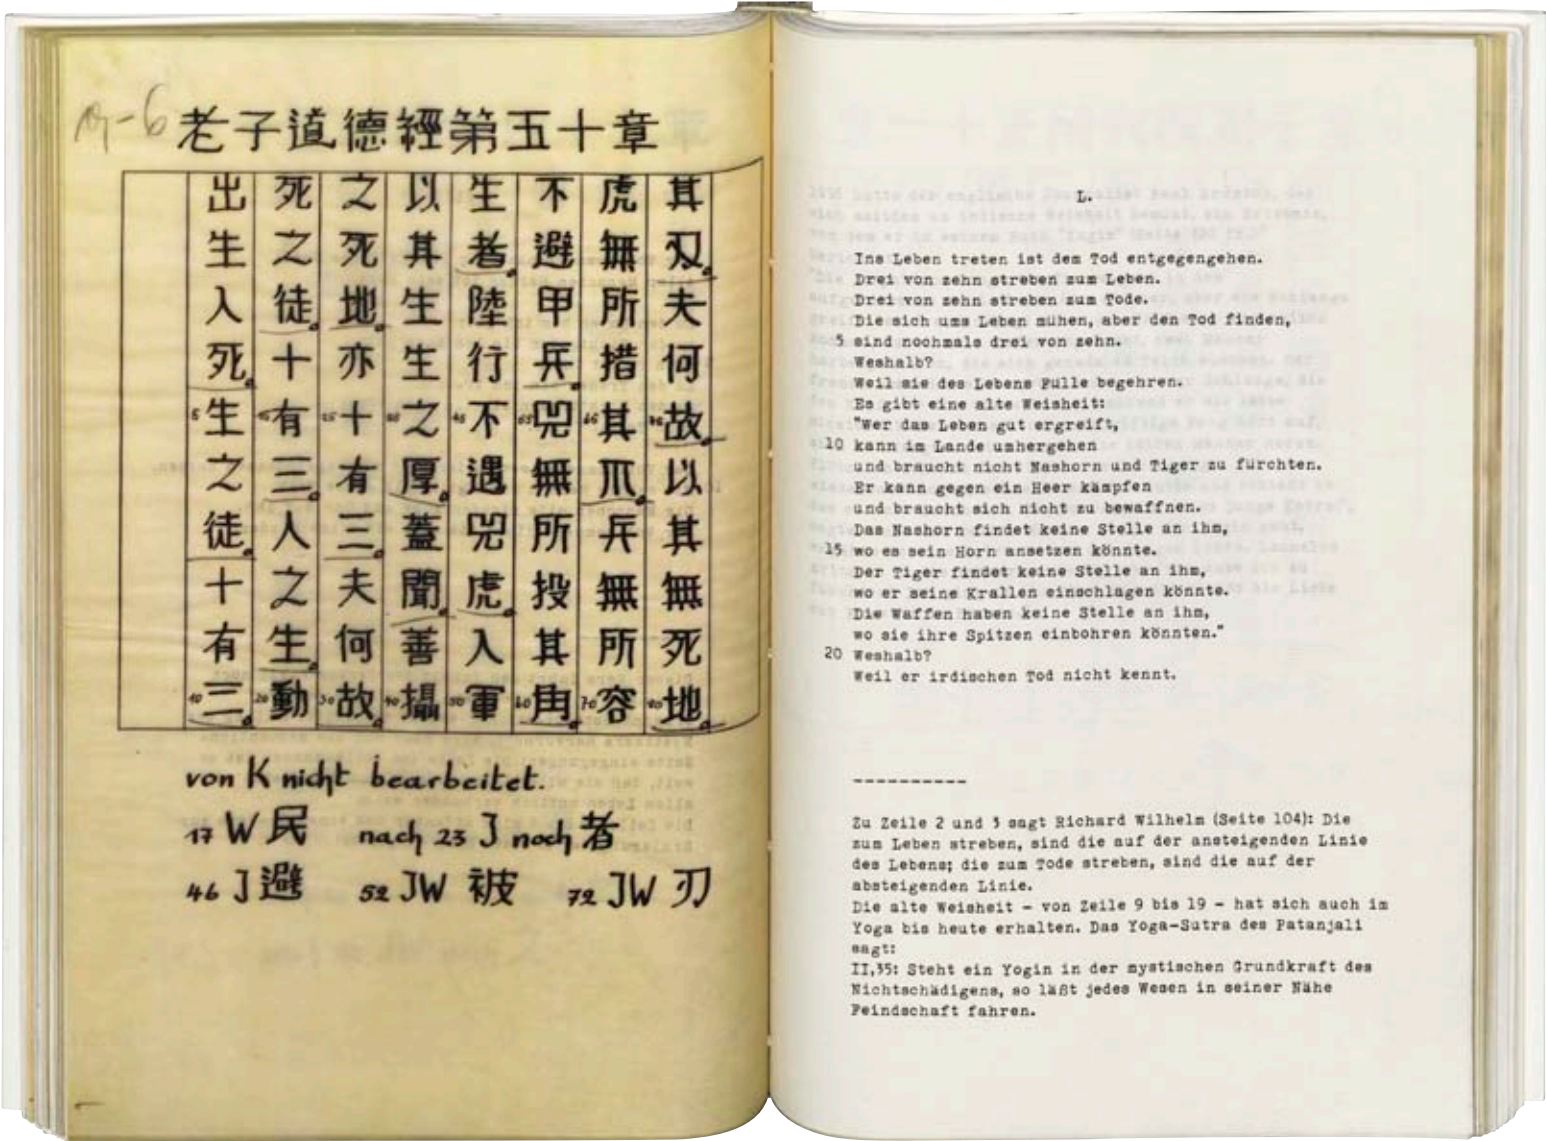 老子道德經第五十章
出生入死。5生之徒。十有10三。
死之徒。十15有三。人之生。20動
之死地。亦25十有三。夫何30故。
以其生生35之厚。蓋聞。善40攝
生者。陸行45不遇兕虎。入50軍
不避甲兵。55兕無所投其60角。
虎無所措65其爪。兵無所70容
其刄。夫何75故。以其無死80地。
von K nicht bearbeitet.
17 W 民 nach 23 J noch 者
46 J 避 52 JW 被 72 JW 刃
L.
Ins Leben treten ist dem Tod entgegengehen.
Drei von zehn streben zum Leben.
Drei von zehn streben zum Tode.
Die sich ums Leben mühen, aber den Tod finden,
5 sind nochmals drei von zehn.
Weshalb?
Weil sie des Lebens Fülle begehren.
Es gibt eine alte Weisheit:
"Wer das Leben gut ergreift,
10 kann im Lande umhergehen
und braucht nicht Nashorn und Tiger zu fürchten.
Er kann gegen ein Heer kämpfen
und braucht sich nicht zu bewaffnen.
Das Nashorn findet keine Stelle an ihm,
15 wo es sein Horn ansetzen könnte.
Der Tiger findet keine Stelle an ihm,
wo er seine Krallen einschlagen könnte.
Die Waffen haben keine Stelle an ihm,
wo sie ihre Spitzen einbohren könnten."
20 Weshalb?
Weil er irdischen Tod nicht kennt.
-----------
Zu Zeile 2 und 3 sagt Richard Wilhelm (Seite 104): Die
zum Leben streben, sind die auf der ansteigenden Linie
des Lebens; die zum Tode streben, sind die auf der
absteigenden Linie.
Die alte Weisheit - von Zeile 9 bis 19 - hat sich auch im
Yoga bis heute erhalten. Das Yoga-Sutra des Patanjali
sagt:
II,35: Steht ein Yogin in der mystischen Grundkraft des
Nichtschädigens, so läßt jedes Wesen in seiner Nähe
Feindschaft fahren.